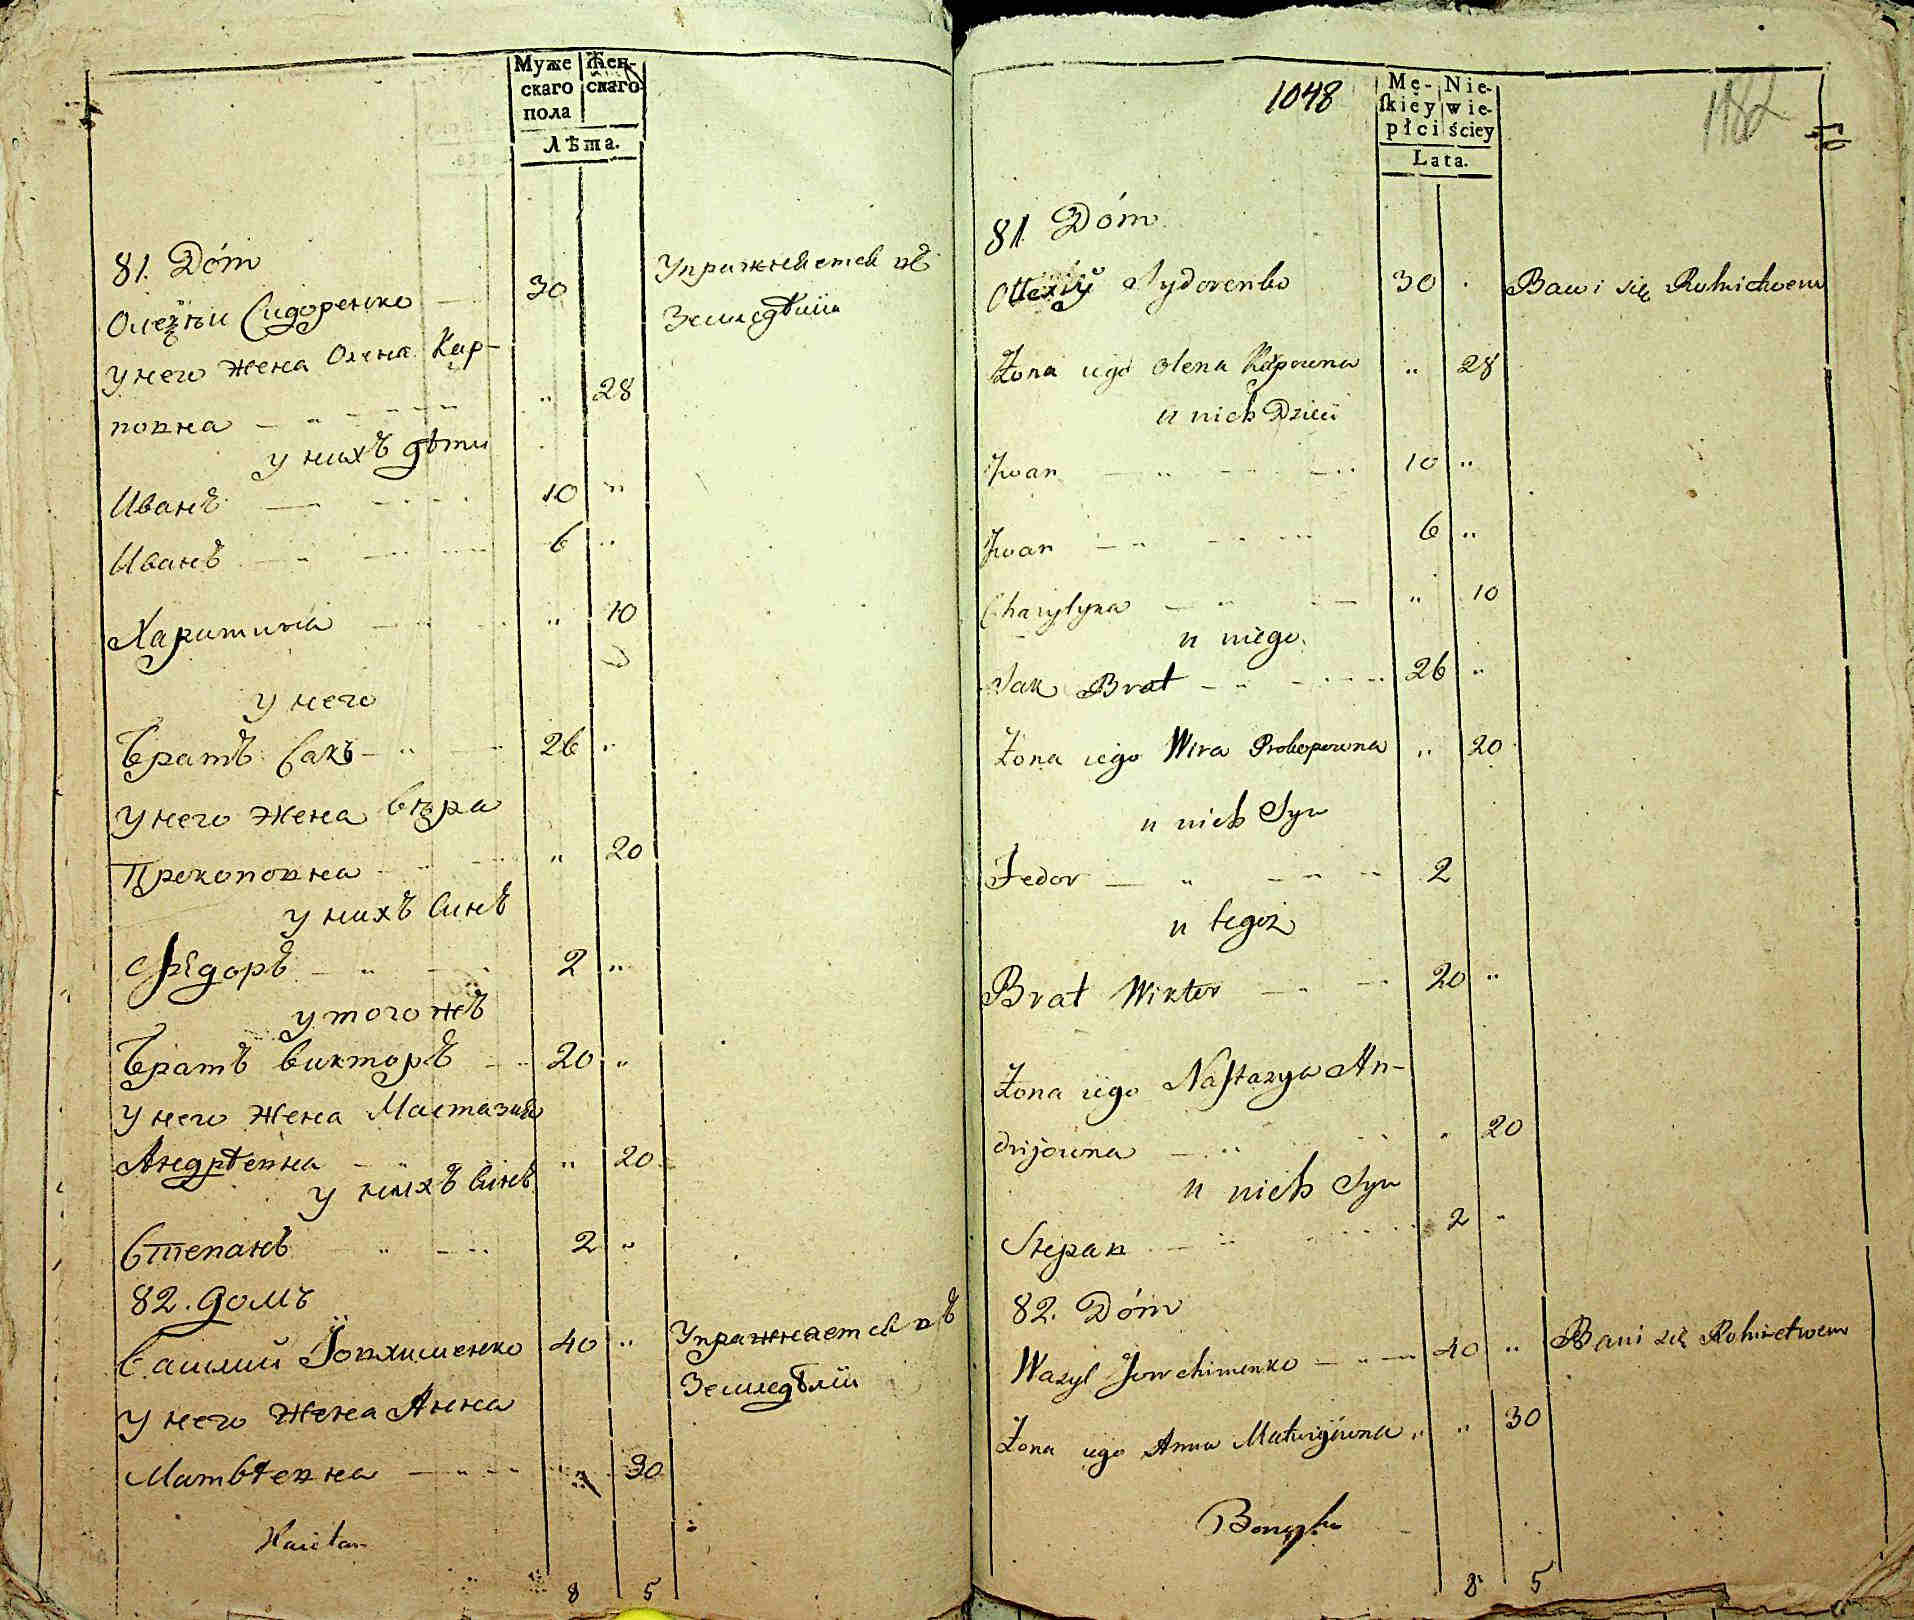 Муже
скаго
пола
Жен-
скаго
Лѣта.
81. Dóm
Олексѣи Сидоренко 30 Упражняется въ
Земледѣліи
у него жена Олена Кар-
повна 28
у нихъ дѣти
Иванъ 10 „
Иванъ 6 „
Харитина „ 10
у него
Братъ Сакъ 26 „
у него жена Вѣра
Прокоповна „ 20
у нихъ Синъ
Фёдоръ 2 „
у того жъ
Братъ Викторъ 20 „
у него жена Мастазия
Андрѣевна „ 20
у нихъ Синъ
Степанъ 2 „
82. домъ
Василий Іовхименко 40 „ Упражняется въ
Земледѣліи
у него жена Анна
Матвѣевна 30
8 5
1048
182
Mę-
skiéy
płci
Nie-
wie-
ściey
Lata.
81. Dóm
Olexiy Sydorenko 30 Bawi się Rolnictwem
Żona iego Olena Karpowna „ 28
u nich Dzieci
Iwan 10 „
Iwan 6 „
Charytyna „ 10
u niego
Sak Brat 26 „
Żona iego Wira Prokopowna „ 20
u nich Syn
Fedor 2
u tegoż
Brat Wiktor 20 „
Żona iego Nastazya An-
drijowna „ 20
u nich Syn
Stepan 2 „
82. Dóm
Wasyl Jowchimenko 40 „ Bawi się Rolnictwem
Żona iego Anna Matwijówna „ 30
8 5